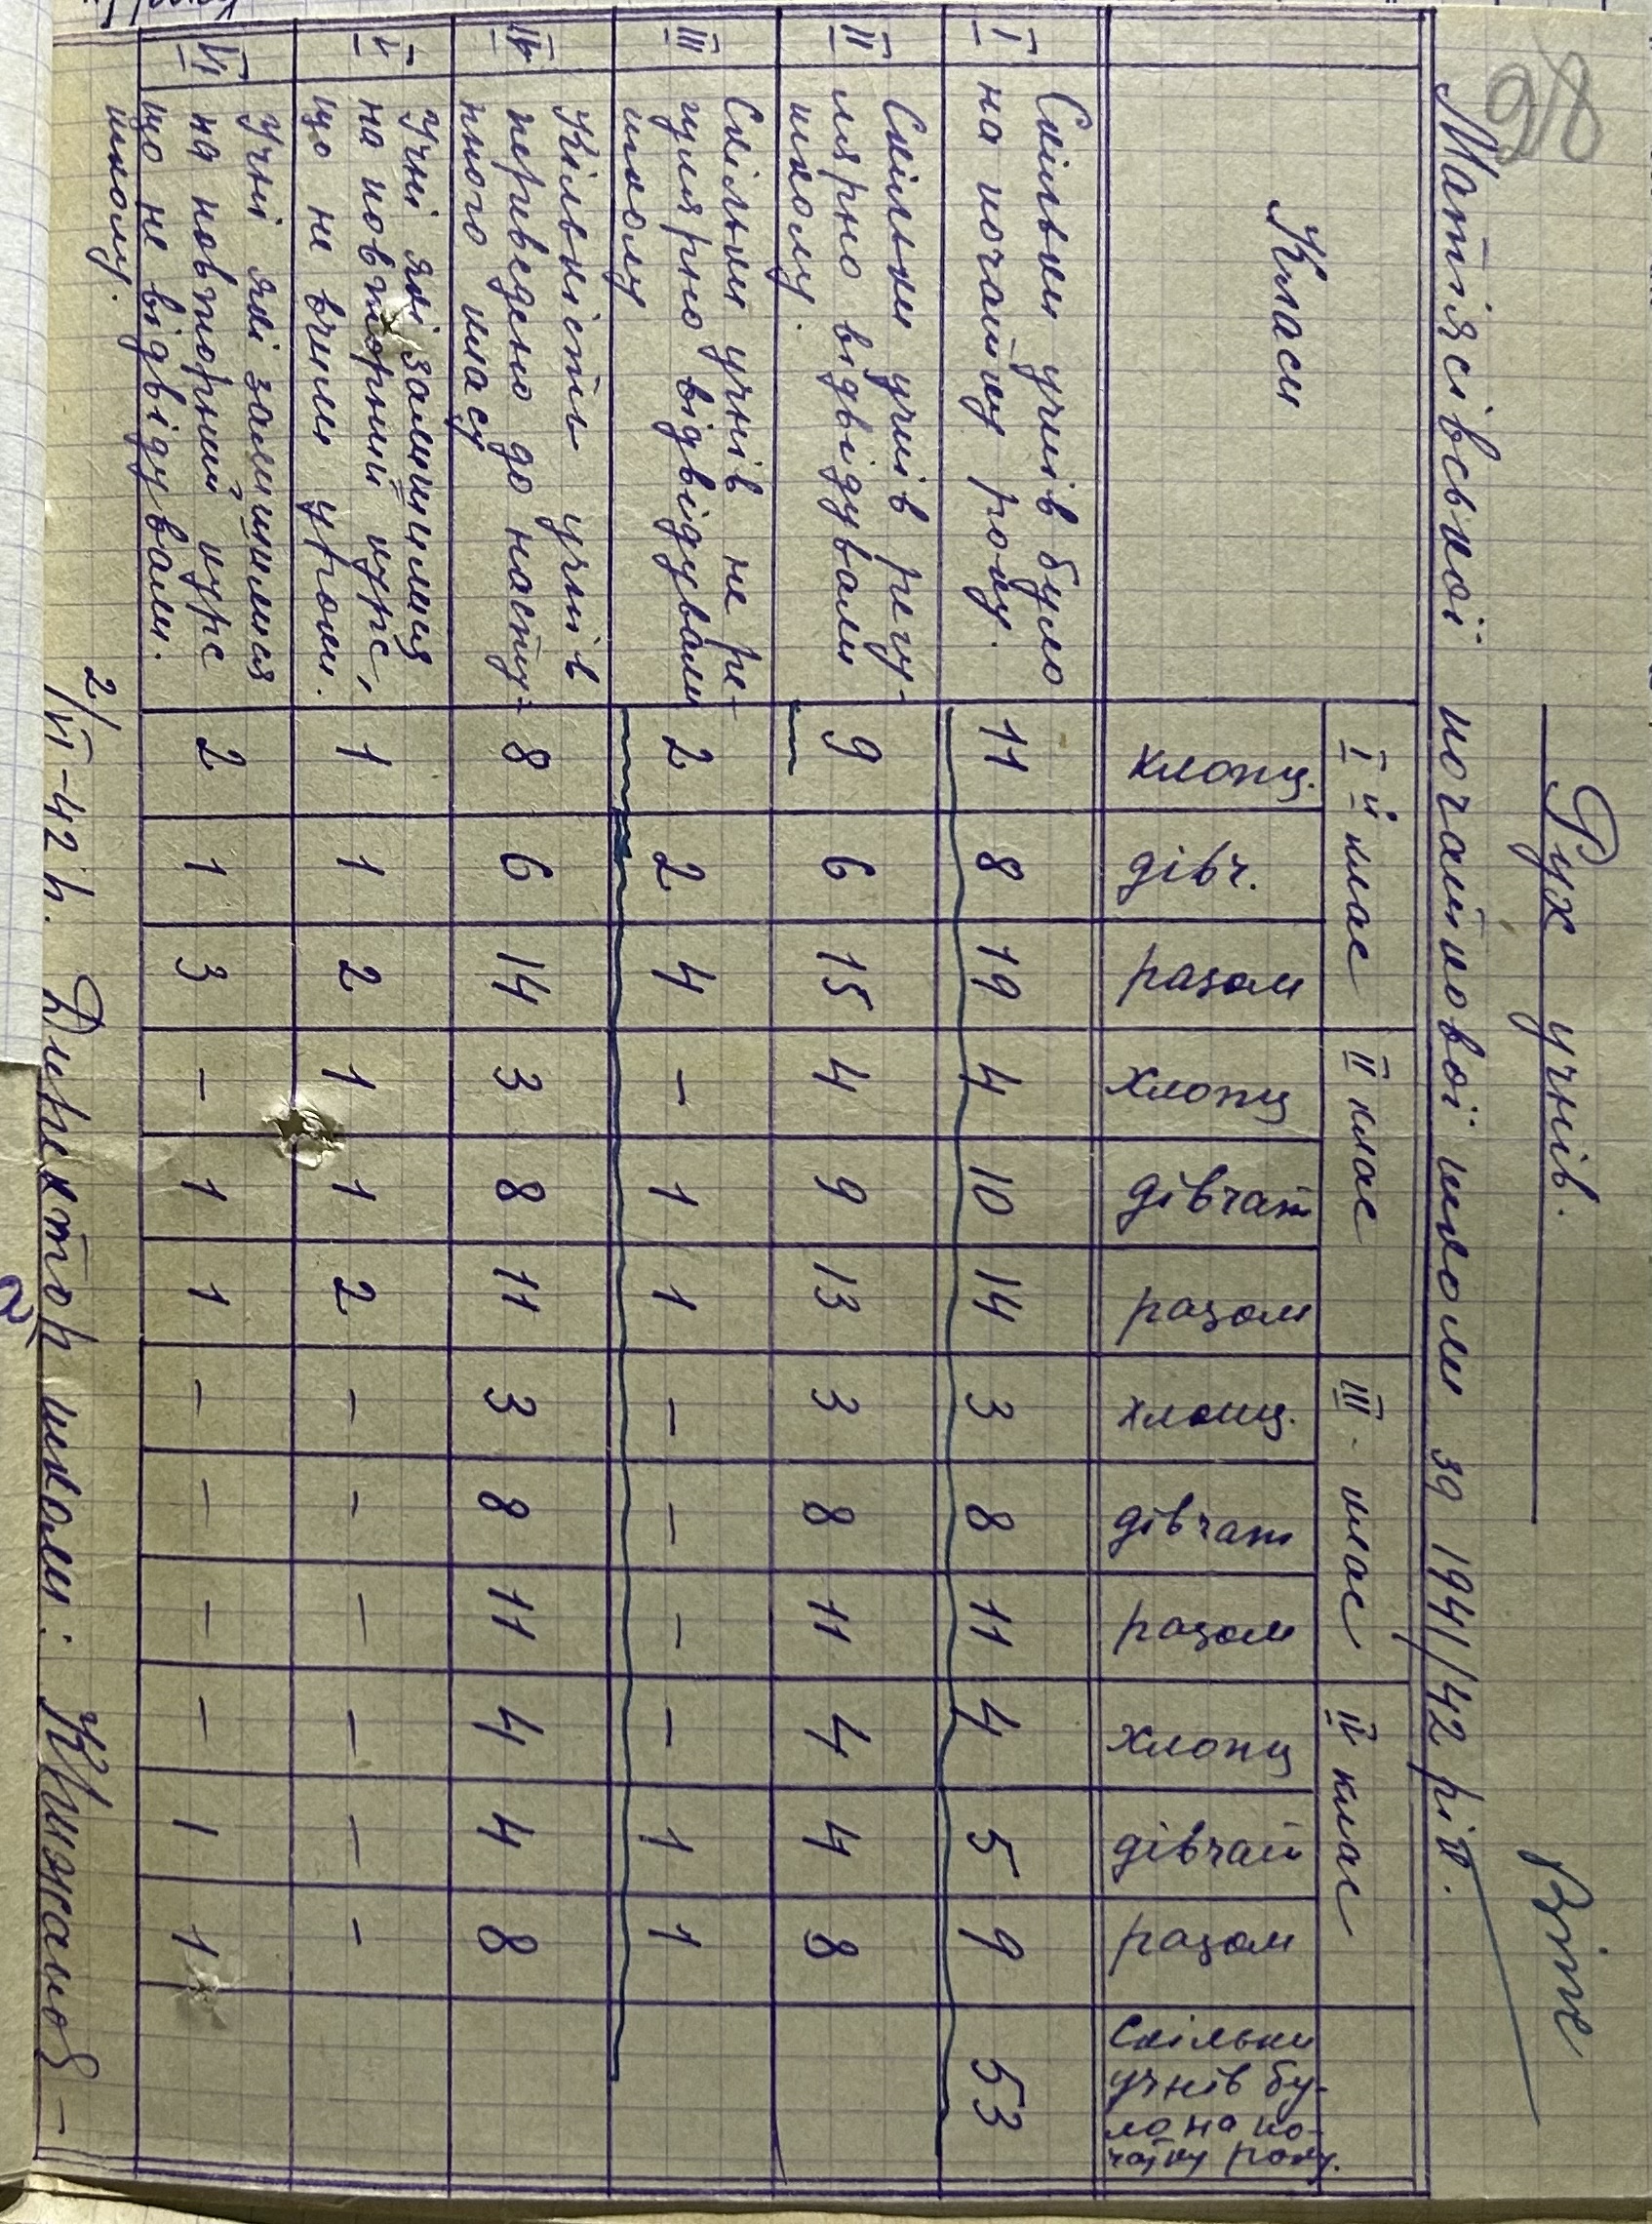 98
Рух учнів.
Матіясівської початкової школи за 1941/42 рік.
Класи
I й клас
II клас
III клас
IV клас
хлопц. дівч. разом хлопц дівчат разом хлопц. дівчат разом хлопц дівчат разом
Скільки
учнів бу-
ло на по-
чатку року.
I Скільки учнів було
на початку року.
11 8 19 4 10 14 3 8 11 4 5 9 53
II Скільки учнів регу-
лярно відвідували
школу.
9 6 15 4 9 13 3 8 11 4 4 8
III Скільки учнів не ре-
гулярно відвідували
школу
2 2 4 - 1 1 - - - - 1 1
IV Кількість учнів
переведено до насту-
пного класу
8 6 14 3 8 11 3 8 11 4 4 8
V Учні які залишилися
на повторний курс,
що не вчили уроки.
1 1 2 1 1 2 - - - - - -
VI Учні які залишилися
на повторний курс
що не відвідували.
школу.
2 1 3 - 1 1 - - - - 1 1
2/VI-42 р. Директор школи: